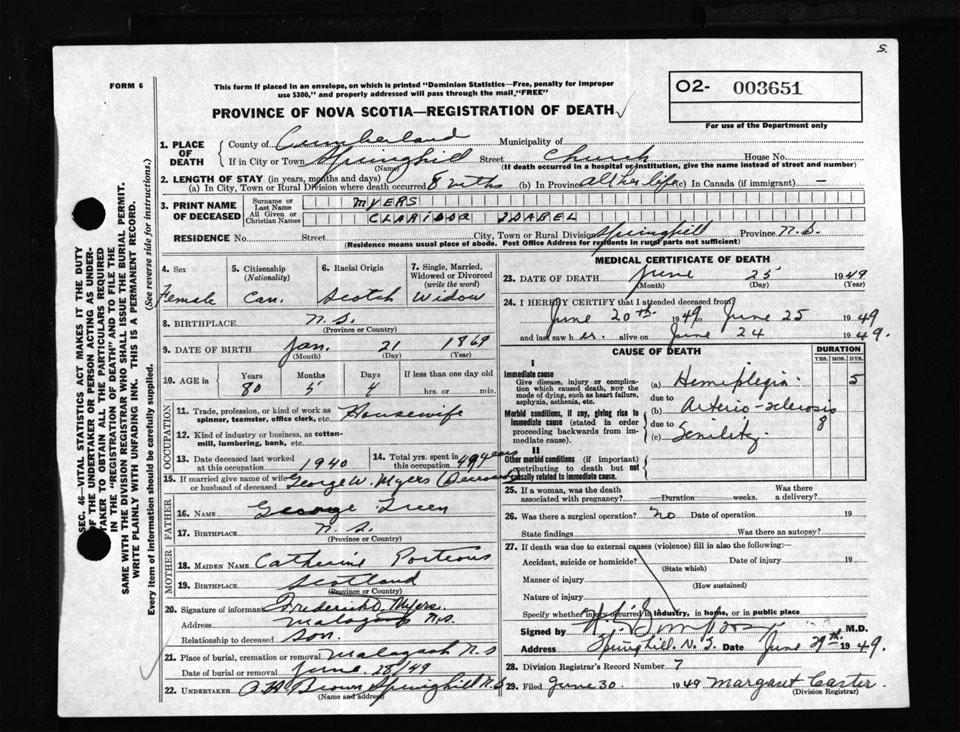 S.
FORM 6
This form if placed in an envelope, on which is printed "Dominion Statistics—Free, penalty for improper
use $300," and properly addressed will pass through the mail "FREE"
PROVINCE OF NOVA SCOTIA—REGISTRATION OF DEATH
O2- 003651
For use of the Department only
1. PLACE OF DEATH
County of Cumberland Municipality of
If in City or Town Springhill Street Church House No.
(Name) (If death occurred in a hospital or institution, give the name instead of street and number)
2. LENGTH OF STAY (in years, months and days)
(a) In City, Town or Rural Division where death occurred 8 mths (b) In Province all her life (c) In Canada (if immigrant) —
3. PRINT NAME OF DECEASED
Surname or Last Name MYERS
All Given or Christian Names CLARISSA ISABEL
RESIDENCE No. Street City, Town or Rural Division Springhill Province N.S.
(Residence means usual place of abode. Post Office Address for residents in rural parts not sufficient)
4. Sex Female
5. Citizenship (Nationality) Can.
6. Racial Origin Scotch
7. Single, Married, Widowed or Divorced (write the word) Widow
8. BIRTHPLACE N.S.
(Province or Country)
9. DATE OF BIRTH Jan. 21 1869
(Month) (Day) (Year)
10. AGE in Years Months Days If less than one day old
80 5 4 hrs. or min.
OCCUPATION
11. Trade, profession, or kind of work as spinner, teamster, office clerk, etc. Housewife
12. Kind of industry or business, as cotton-mill, lumbering, bank, etc.
13. Date deceased last worked at this occupation 1940
14. Total yrs. spent in this occupation 49 years
15. If married give name of wife or husband of deceased George W. Myers
FATHER
16. NAME George
17. BIRTHPLACE N.S.
(Province or Country)
MOTHER
18. MAIDEN NAME Catherine Porteous
19. BIRTHPLACE Scotland
(Province or Country)
20. Signature of informant Frederick D. Myers
Address Malagash N.S.
Relationship to deceased Son.
21. Place of burial, cremation or removal Malagash N.S
Date of burial or removal June 28/49
22. UNDERTAKER Brown Springhill N.S
(Name and address)
MEDICAL CERTIFICATE OF DEATH
23. DATE OF DEATH June 25 1949
(Month) (Day) (Year)
24. I HEREBY CERTIFY that I attended deceased from
June 20th 1949 to June 25 1949
and last saw her alive on June 24 1949.
CAUSE OF DEATH
DURATION
YRS. MOS. DYS.
I
Immediate cause
Give disease, injury or complication which caused death, NOT the mode of dying, such as heart failure, asphyxia, asthenia, etc.
(a) Hemiplegia 5
due to
Morbid conditions, if any, giving rise to immediate cause (stated in order proceeding backwards from immediate cause).
(b) Arterio-sclerosis 8
due to
(c) Senility
II
Other morbid conditions (if important) contributing to death but not causally related to immediate cause.
25. If a woman, was the death associated with pregnancy? Duration weeks. Was there a delivery?
26. Was there a surgical operation? no Date of operation 19
State findings Was there an autopsy?
27. If death was due to external causes (violence) fill in also the following:—
Accident, suicide or homicide? Date of injury 19
(State which)
Manner of injury
(How sustained)
Nature of injury
Specify whether injury occurred in industry, in home, or in public place
Signed by M.D.
Address Springhill N.S. Date June 29th 1949.
28. Division Registrar's Record Number 7
29. Filed June 30. 1949 Margaret Carter
(Division Registrar)
SEC. 46—VITAL STATISTICS ACT MAKES IT THE DUTY
OF THE UNDERTAKER OR PERSON ACTING AS UNDER-
TAKER TO OBTAIN ALL THE PARTICULARS REQUIRED
IN THE "REGISTRATION OF DEATH" AND TO FILE THE
SAME WITH THE DIVISION REGISTRAR WHO SHALL ISSUE THE BURIAL PERMIT.
WRITE PLAINLY WITH UNFADING INK. THIS IS A PERMANENT RECORD.
Every item of information should be carefully supplied. (See reverse side for instructions.)